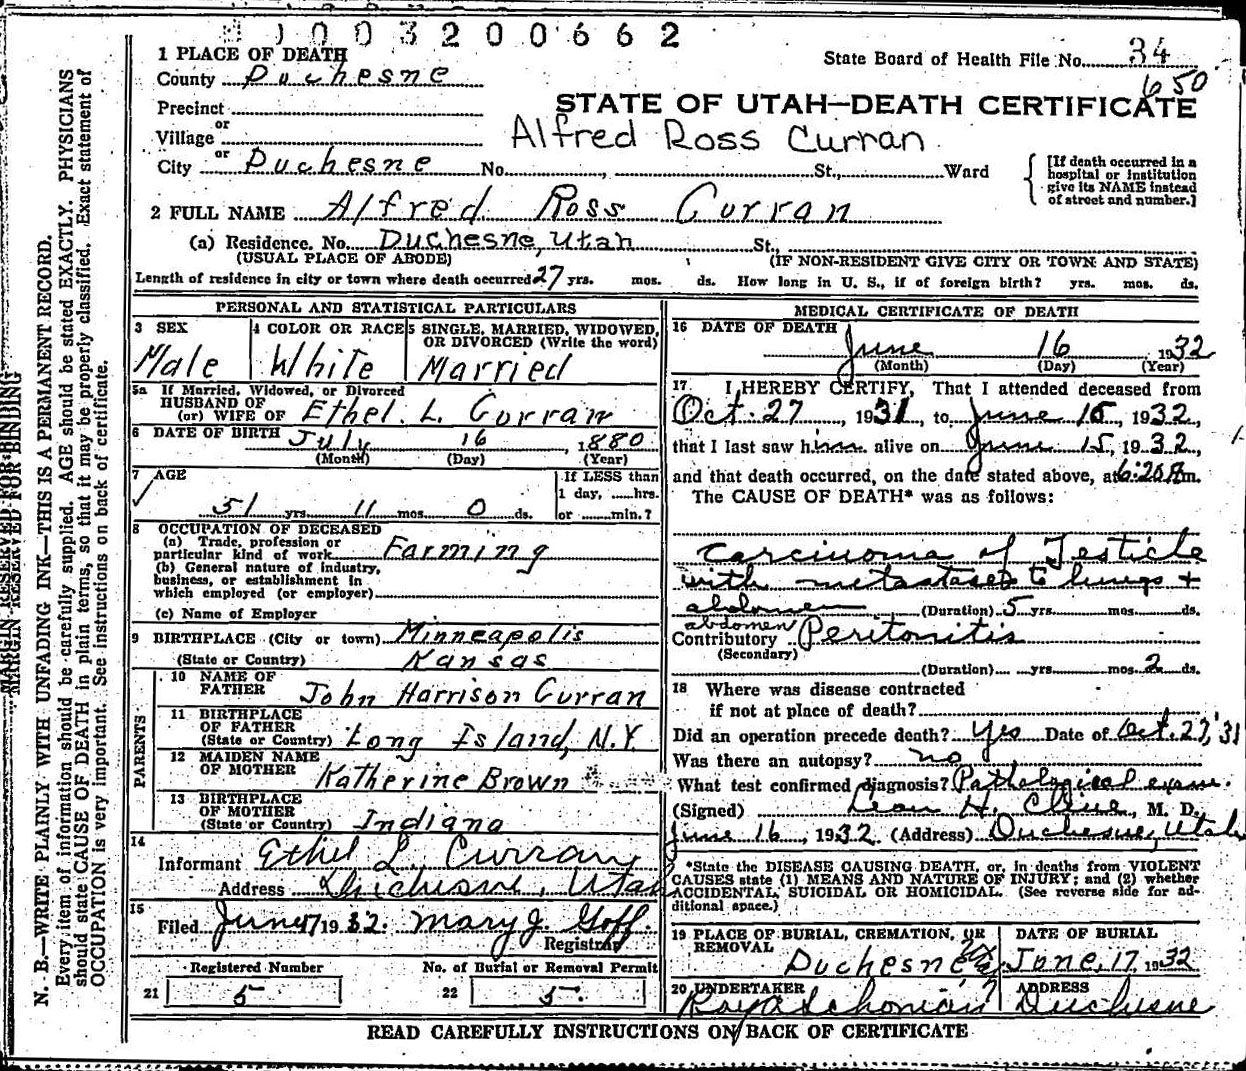 1003200662
1 PLACE OF DEATH
State Board of Health File No. 34
County Duchesne
650
Precinct
STATE OF UTAH—DEATH CERTIFICATE
or
Village
Alfred Ross Curran
or
City Duchesne No. , St., Ward
[If death occurred in a hospital or institution give its NAME instead of street and number.]
2 FULL NAME Alfred Ross Curran
(a) Residence. No. Duchesne, Utah St.,
(USUAL PLACE OF ABODE) (IF NON-RESIDENT GIVE CITY OR TOWN AND STATE)
Length of residence in city or town where death occurred 27 yrs. mos. ds. How long in U. S., if of foreign birth? yrs. mos. ds.
PERSONAL AND STATISTICAL PARTICULARS
3 SEX
Male
4 COLOR OR RACE
White
5 SINGLE, MARRIED, WIDOWED, OR DIVORCED (Write the word)
Married
5a If Married, Widowed, or Divorced
HUSBAND OF
(or) WIFE OF Ethel. L. Curran
6 DATE OF BIRTH July 16, 1880
(Month) (Day) (Year)
7 AGE
51 yrs. 11 mos. 0 ds.
If LESS than
1 day, ......hrs.
or ........min.?
8 OCCUPATION OF DECEASED
(a) Trade, profession or
particular kind of work Farming
(b) General nature of industry,
business, or establishment in
which employed (or employer)
(c) Name of Employer
9 BIRTHPLACE (City or town) Minneapolis
(State or Country) Kansas
PARENTS
10 NAME OF FATHER John Harrison Curran
11 BIRTHPLACE OF FATHER
(State or Country) Long Island, N.Y.
12 MAIDEN NAME OF MOTHER Katherine Brown
13 BIRTHPLACE OF MOTHER
(State or Country) Indiana
14
Informant Ethel L. Curran
Address Duchesne, Utah
15
Filed June 17 1932. Mary J. Goff.
Registrar
Registered Number
21 5
No. of Burial or Removal Permit
22 5.
MEDICAL CERTIFICATE OF DEATH
16 DATE OF DEATH
June 16 1932
(Month) (Day) (Year)
17 I HEREBY CERTIFY, That I attended deceased from
Oct. 27, 1931 to June 15, 1932,
that I last saw him alive on June 15, 1932,
and that death occurred, on the date stated above, at 6:20 A m.
The CAUSE OF DEATH* was as follows:
Carcinoma of Testicle
with metastases to lungs +
abdomen (Duration) 5 yrs. mos. ds.
abdomen
Contributory Peritonitis
(Secondary)
(Duration) yrs. mos. 2 ds.
18 Where was disease contracted
if not at place of death?
Did an operation precede death? yes Date of Oct. 27, '31
Was there an autopsy? no
What test confirmed diagnosis? Pathological exam.
(Signed) H. M. D.
June 16, 1932. (Address) Duchesne, Utah
*State the DISEASE CAUSING DEATH, or, in deaths from VIOLENT
CAUSES state (1) MEANS AND NATURE OF INJURY; and (2) whether
ACCIDENTAL, SUICIDAL OR HOMICIDAL. (See reverse side for ad-
ditional space.)
19 PLACE OF BURIAL, CREMATION, OR REMOVAL
Duchesne
DATE OF BURIAL
June, 17, 1932
20 UNDERTAKER
ADDRESS
Duchesne
READ CAREFULLY INSTRUCTIONS ON BACK OF CERTIFICATE
MARGIN RESERVED FOR BINDING
N. B.—WRITE PLAINLY WITH UNFADING INK—THIS IS A PERMANENT RECORD.
Every item of information should be carefully supplied. AGE should be stated EXACTLY. PHYSICIANS
should state CAUSE OF DEATH in plain terms, so that it may be properly classified. Exact statement of
OCCUPATION is very important. See instructions on back of certificate.